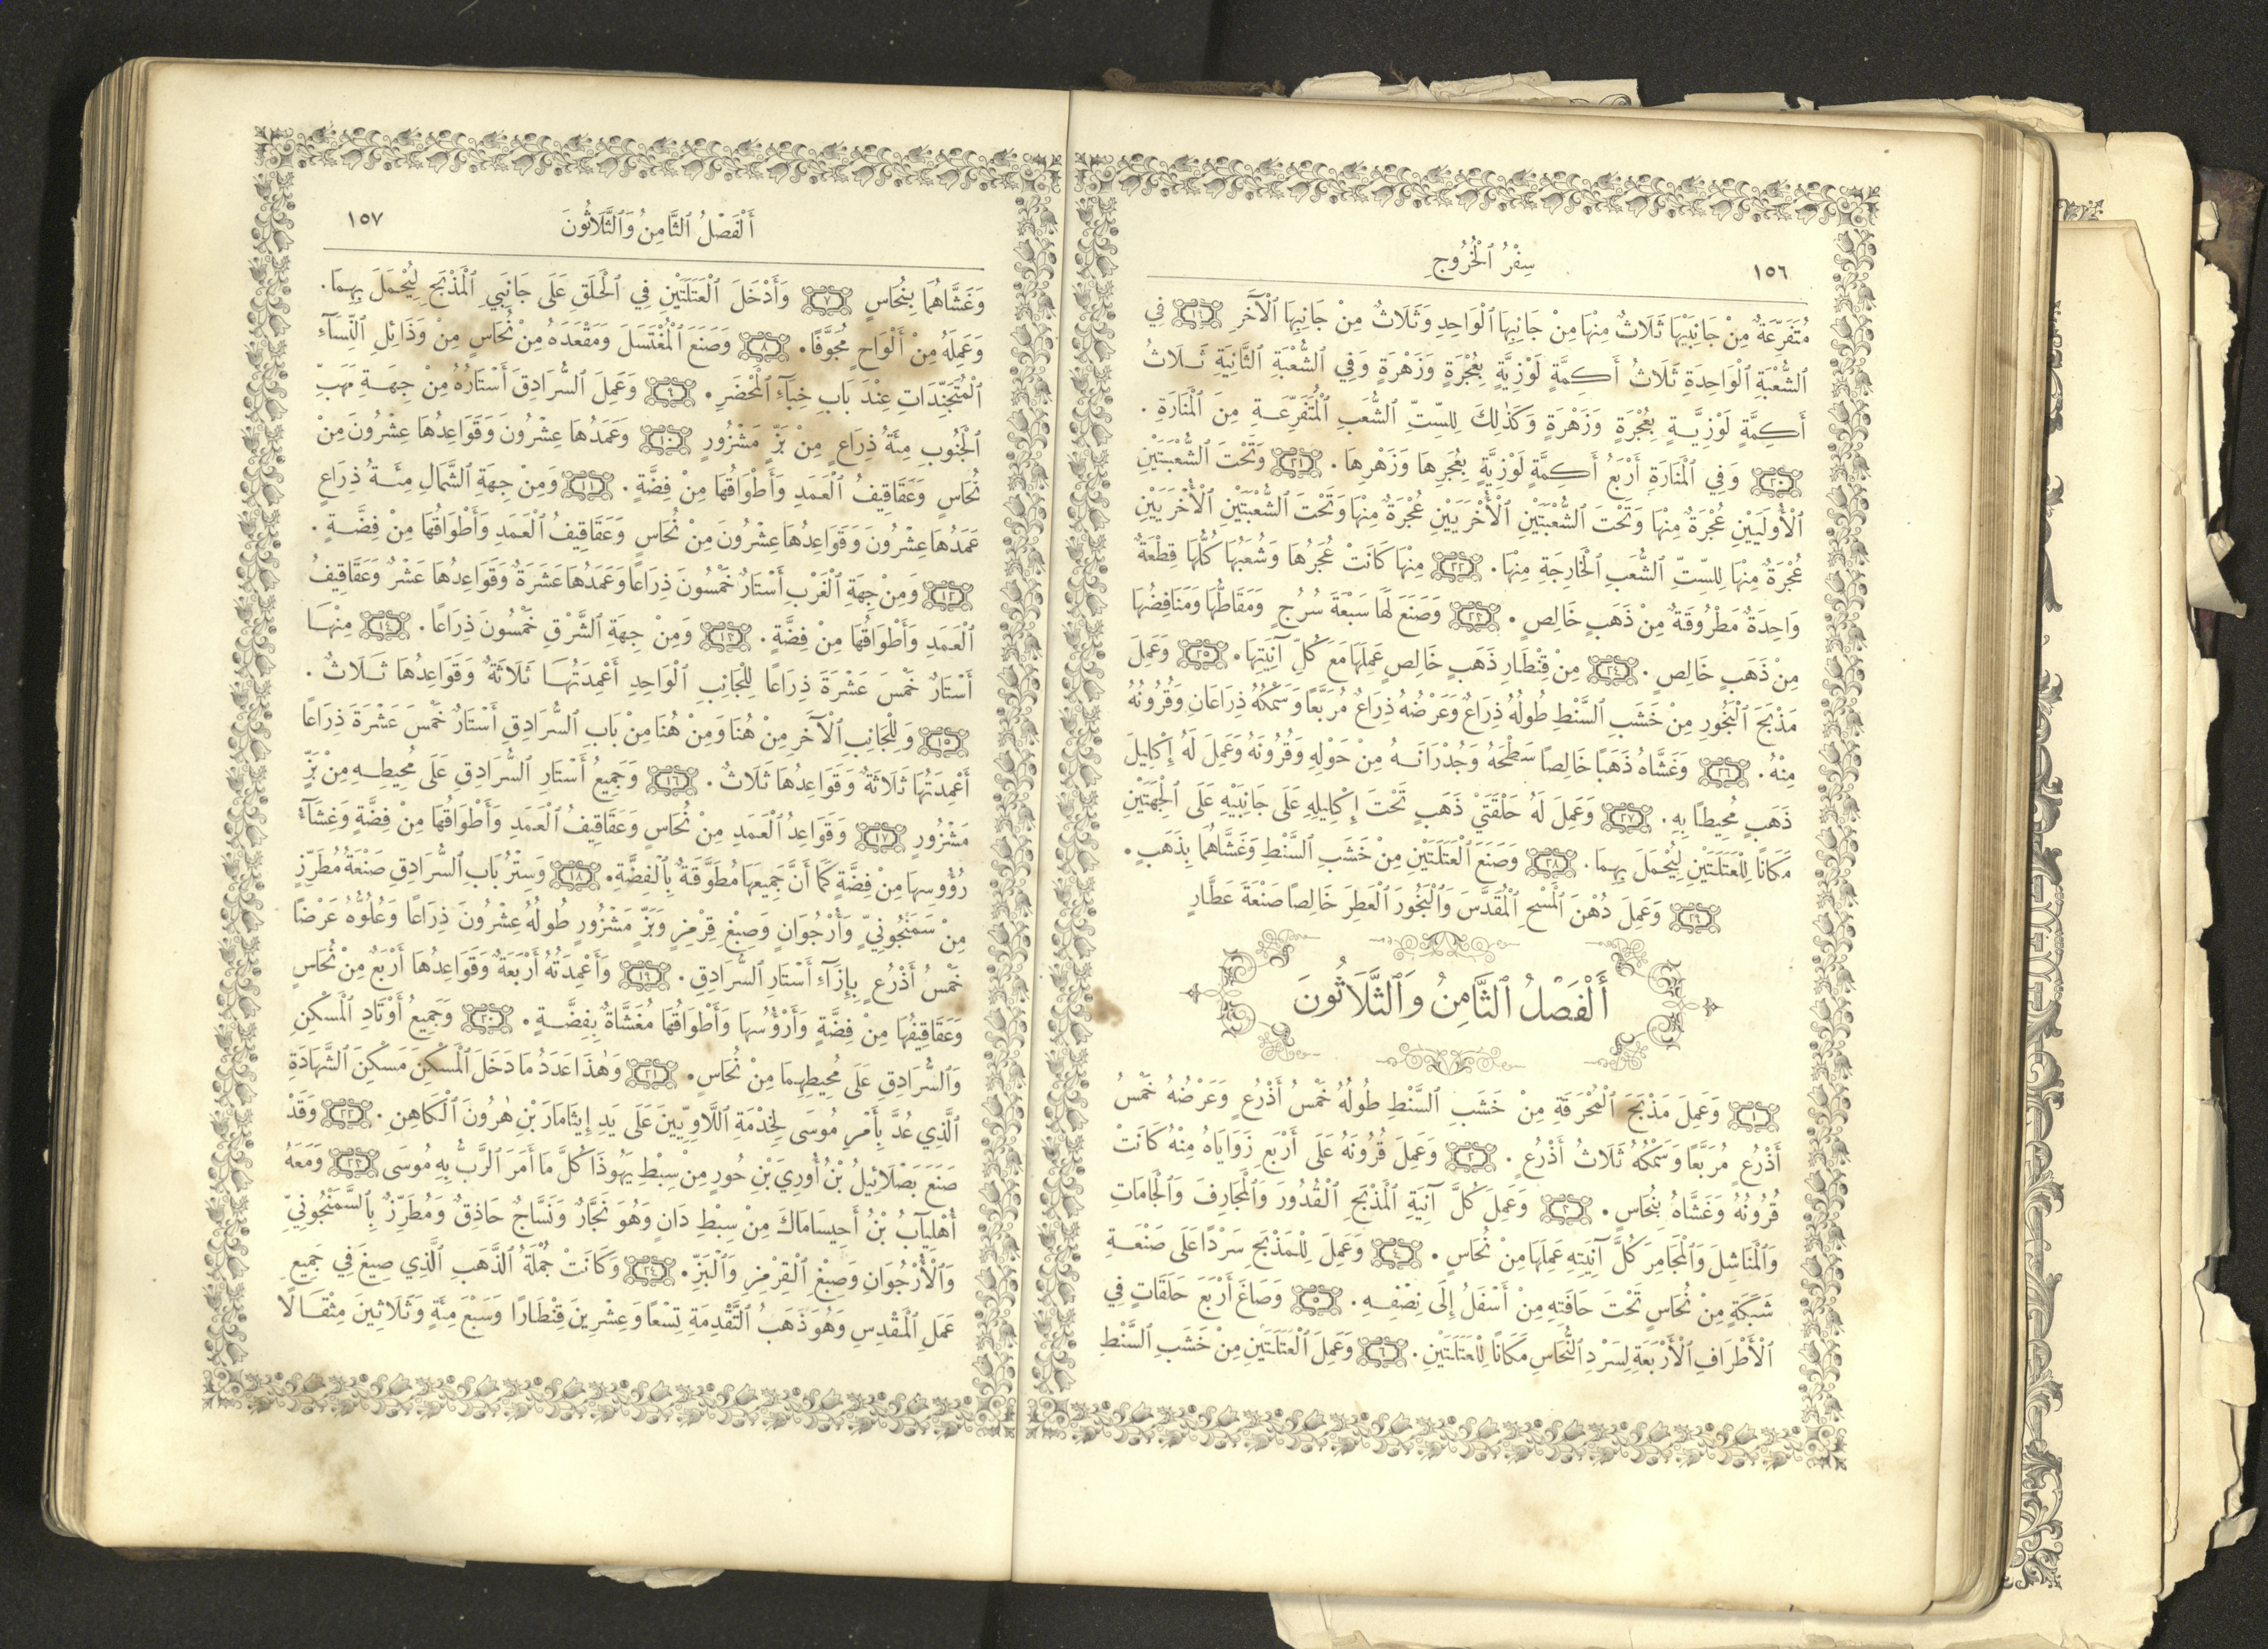 ١٥٦
سِفْرُ ٱلْخُرُوجِ
مُتَفَرِّعَةٌ مِنْ جَانِبَيْهَا ثَلَاثٌ مِنْهَا مِنْ جَانِبِهَا ٱلْوَاحِدِ وَثَلَاثٌ مِنْ جَانِبِهَا ٱلْآخَرِ ١٩ فِي
ٱلشُّعْبَةِ ٱلْوَاحِدَةِ ثَلَاثُ أَكِمَّةٍ لَوْزِيَّةٍ بِعُجْرَةٍ وَزَهْرَةٍ وَفِي ٱلشُّعْبَةِ ٱلثَّانِيَةِ ثَلَاثُ
أَكِمَّةٍ لَوْزِيَّةٍ بِعُجْرَةٍ وَزَهْرَةٍ وَكَذٰلِكَ لِلسِّتِّ ٱلشُّعَبِ ٱلْمُتَفَرِّعَةِ مِنَ ٱلْمَنَارَةِ .
٢٠ وَفِي ٱلْمَنَارَةِ أَرْبَعُ أَكِمَّةٍ لَوْزِيَّةٍ بِعُجَرِهَا وَزَهْرِهَا . ٢١ وَتَحْتَ ٱلشُّعْبَتَيْنِ
ٱلْأُولَيَيْنِ عُجْرَةٌ مِنْهَا وَتَحْتَ ٱلشُّعْبَتَيْنِ ٱلْأُخْرَيَيْنِ عُجْرَةٌ مِنْهَا وَتَحْتَ ٱلشُّعْبَتَيْنِ ٱلْأُخْرَيَيْنِ
عُجْرَةٌ مِنْهَا لِلسِّتِّ ٱلشُّعَبِ ٱلْخَارِجَةِ مِنْهَا . ٢٢ مِنْهَا كَانَتْ عُجَرُهَا وَشُعَبُهَا كُلُّهَا قِطْعَةٌ
وَاحِدَةٌ مَطْرُوقَةٌ مِنْ ذَهَبٍ خَالِصٍ . ٢٣ وَصَنَعَ لَهَا سَبْعَةَ سُرُجٍ وَمَقَاطَّهَا وَمَنَافِضَهَا
مِنْ ذَهَبٍ خَالِصٍ . ٢٤ مِنْ قِنْطَارِ ذَهَبٍ خَالِصٍ عَمِلَهَا مَعَ كُلِّ آنِيَتِهَا . ٢٥ وَعَمِلَ
مَذْبَحَ ٱلْبَخُورِ مِنْ خَشَبِ ٱلسَّنْطِ طُولُهُ ذِرَاعٌ وَعَرْضُهُ ذِرَاعٌ مُرَبَّعًا وَسَمْكُهُ ذِرَاعَانِ وَقُرُونُهُ
مِنْهُ . ٢٦ وَغَشَّاهُ ذَهَبًا خَالِصًا سَطْحَهُ وَجُدْرَانَهُ مِنْ حَوْلِهِ وَقُرُونَهُ وَعَمِلَ لَهُ إِكْلِيلَ
ذَهَبٍ مُحِيطًا بِهِ . ٢٧ وَعَمِلَ لَهُ حَلْقَتَيْ ذَهَبٍ تَحْتَ إِكْلِيلِهِ عَلَى جَانِبَيْهِ عَلَى ٱلْجِهَتَيْنِ
مَكَانًا لِلْعَتَلَتَيْنِ لِيُحْمَلَ بِهِمَا . ٢٨ وَصَنَعَ ٱلْعَتَلَتَيْنِ مِنْ خَشَبِ ٱلسَّنْطِ وَغَشَّاهُمَا بِذَهَبٍ .
٢٩ وَعَمِلَ دُهْنَ ٱلْمَسْحِ ٱلْمُقَدَّسَ وَٱلْبَخُورَ ٱلْعَطِرَ خَالِصًا صَنْعَةَ عَطَّارٍ
أَلْفَصْلُ ٱلثَّامِنُ وَٱلثَّلَاثُونَ
١ وَعَمِلَ مَذْبَحَ ٱلْمُحْرَقَةِ مِنْ خَشَبِ ٱلسَّنْطِ طُولُهُ خَمْسُ أَذْرُعٍ وَعَرْضُهُ خَمْسُ
أَذْرُعٍ مُرَبَّعًا وَسَمْكُهُ ثَلَاثُ أَذْرُعٍ . ٢ وَعَمِلَ قُرُونَهُ عَلَى أَرْبَعِ زَوَايَاهُ مِنْهُ كَانَتْ
قُرُونُهُ وَغَشَّاهُ بِنُحَاسٍ . ٣ وَعَمِلَ كُلَّ آنِيَةِ ٱلْمَذْبَحِ ٱلْقُدُورَ وَٱلْمَجَارِفَ وَٱلْجَامَاتِ
وَٱلْمَنَاشِلَ وَٱلْمَجَامِرَ كُلَّ آنِيَتِهِ عَمِلَهَا مِنْ نُحَاسٍ . ٤ وَعَمِلَ لِلْمَذْبَحِ سَرْدًا عَلَى صَنْعَةِ
شَبَكَةٍ مِنْ نُحَاسٍ تَحْتَ حَافَتِهِ مِنْ أَسْفَلُ إِلَى نِصْفِهِ . ٥ وَصَاغَ أَرْبَعَ حَلَقَاتٍ فِي
ٱلْأَطْرَافِ ٱلْأَرْبَعَةِ لِسَرْدِ ٱلنُّحَاسِ مَكَانًا لِلْعَتَلَتَيْنِ . ٦ وَعَمِلَ ٱلْعَتَلَتَيْنِ مِنْ خَشَبِ ٱلسَّنْطِ
أَلْفَصْلُ ٱلثَّامِنُ وَٱلثَّلَاثُونَ
١٥٧
وَغَشَّاهُمَا بِنُحَاسٍ ٧ وَأَدْخَلَ ٱلْعَتَلَتَيْنِ فِي ٱلْحَلَقِ عَلَى جَانِبَيِ ٱلْمَذْبَحِ لِيُحْمَلَ بِهِمَا .
وَعَمِلَهُ مِنْ أَلْوَاحٍ مُجَوَّفًا . ٨ وَصَنَعَ ٱلْمُغْتَسَلَ وَمَقْعَدَهُ مِنْ نُحَاسٍ مِنْ وَذَائِلِ ٱلنِّسَآءِ
ٱلْمُتَجَنِّدَاتِ عِنْدَ بَابِ خِبَآءِ ٱلْمَحْضَرِ . ٩ وَعَمِلَ ٱلسُّرَادِقَ أَسْتَارُهُ مِنْ جِهَةِ مَهَبِّ
ٱلْجَنُوبِ مِئَةُ ذِرَاعٍ مِنْ بَزٍّ مَشْزُورٍ ١٠ وَعَمَدُهَا عِشْرُونَ وَقَوَاعِدُهَا عِشْرُونَ مِنْ
نُحَاسٍ وَعَقَاقِيفُ ٱلْعَمَدِ وَأَطْوَاقُهَا مِنْ فِضَّةٍ . ١١ وَمِنْ جِهَةِ ٱلشَّمَالِ مِئَةُ ذِرَاعٍ
عَمَدُهَا عِشْرُونَ وَقَوَاعِدُهَا عِشْرُونَ مِنْ نُحَاسٍ وَعَقَاقِيفُ ٱلْعَمَدِ وَأَطْوَاقُهَا مِنْ فِضَّةٍ .
١٢ وَمِنْ جِهَةِ ٱلْغَرْبِ أَسْتَارٌ خَمْسُونَ ذِرَاعًا وَعَمَدُهَا عَشَرَةٌ وَقَوَاعِدُهَا عَشْرٌ وَعَقَاقِيفُ
ٱلْعَمَدِ وَأَطْوَاقُهَا مِنْ فِضَّةٍ . ١٣ وَمِنْ جِهَةِ ٱلشَّرْقِ خَمْسُونَ ذِرَاعًا . ١٤ مِنْهَا
أَسْتَارٌ خَمْسَ عَشْرَةَ ذِرَاعًا لِلْجَانِبِ ٱلْوَاحِدِ أَعْمِدَتُهَا ثَلَاثَةٌ وَقَوَاعِدُهَا ثَلَاثٌ .
١٥ وَلِلْجَانِبِ ٱلْآخَرِ مِنْ هُنَا وَمِنْ هُنَا مِنْ بَابِ ٱلسُّرَادِقِ أَسْتَارٌ خَمْسَ عَشْرَةَ ذِرَاعًا
أَعْمِدَتُهَا ثَلَاثَةٌ وَقَوَاعِدُهَا ثَلَاثٌ . ١٦ وَجَمِيعُ أَسْتَارِ ٱلسُّرَادِقِ عَلَى مُحِيطِهِ مِنْ بَزٍّ
مَشْزُورٍ ١٧ وَقَوَاعِدُ ٱلْعَمَدِ مِنْ نُحَاسٍ وَعَقَاقِيفُ ٱلْعَمَدِ وَأَطْوَاقُهَا مِنْ فِضَّةٍ وَغِشَآءُ
رُؤُوسِهَا مِنْ فِضَّةٍ كَمَا أَنَّ جَمِيعَهَا مُطَوَّقَةٌ بِٱلْفِضَّةِ . ١٨ وَسِتْرُ بَابِ ٱلسُّرَادِقِ صَنْعَةُ مُطَرِّزٍ
مِنْ سَمَنْجُونِيٍّ وَأُرْجُوَانٍ وَصِبْغِ قِرْمِزٍ وَبَزٍّ مَشْزُورٍ طُولُهُ عِشْرُونَ ذِرَاعًا وَعُلُوُّهُ عَرْضًا
خَمْسُ أَذْرُعٍ بِإِزَآءِ أَسْتَارِ ٱلسُّرَادِقِ . ١٩ وَأَعْمِدَتُهُ أَرْبَعَةٌ وَقَوَاعِدُهَا أَرْبَعٌ مِنْ نُحَاسٍ
وَعَقَاقِيفُهَا مِنْ فِضَّةٍ وَأَرْؤُسُهَا وَأَطْوَاقُهَا مُغَشَّاةٌ بِفِضَّةٍ . ٢٠ وَجَمِيعُ أَوْتَادِ ٱلْمَسْكِنِ
وَٱلسُّرَادِقِ عَلَى مُحِيطِهِمَا مِنْ نُحَاسٍ . ٢١ وَهٰذَا عَدَدُ مَا دَخَلَ ٱلْمَسْكِنَ مَسْكِنَ ٱلشَّهَادَةِ
ٱلَّذِي عُدَّ بِأَمْرِ مُوسَى لِخِدْمَةِ ٱللَّاوِيِّينَ عَلَى يَدِ إِيتَامَارَ بْنِ هٰرُونَ ٱلْكَاهِنِ . ٢٢ وَقَدْ
صَنَعَ بَصَلْئِيلُ بْنُ أُورِيَ بْنِ حُورٍ مِنْ سِبْطِ يَهُوذَا كُلَّ مَا أَمَرَ ٱلرَّبُّ بِهِ مُوسَى ٢٣ وَمَعَهُ
أُهْلِيآبُ بْنُ أَحِيسَامَاكَ مِنْ سِبْطِ دَانٍ وَهُوَ نَجَّارٌ وَنَسَّاجٌ حَاذِقٌ وَمُطَرِّزٌ بِٱلسَّمَنْجُونِيِّ
وَٱلْأُرْجُوَانِ وَصِبْغِ ٱلْقِرْمِزِ وَٱلْبَزِّ . ٢٤ وَكَانَتْ جُمْلَةُ ٱلذَّهَبِ ٱلَّذِي صِيغَ فِي جَمِيعِ
عَمَلِ ٱلْمَقْدِسِ وَهُوَ ذَهَبُ ٱلتَّقْدِمَةِ تِسْعًا وَعِشْرِينَ قِنْطَارًا وَسَبْعَ مِئَةٍ وَثَلَاثِينَ مِثْقَالًا